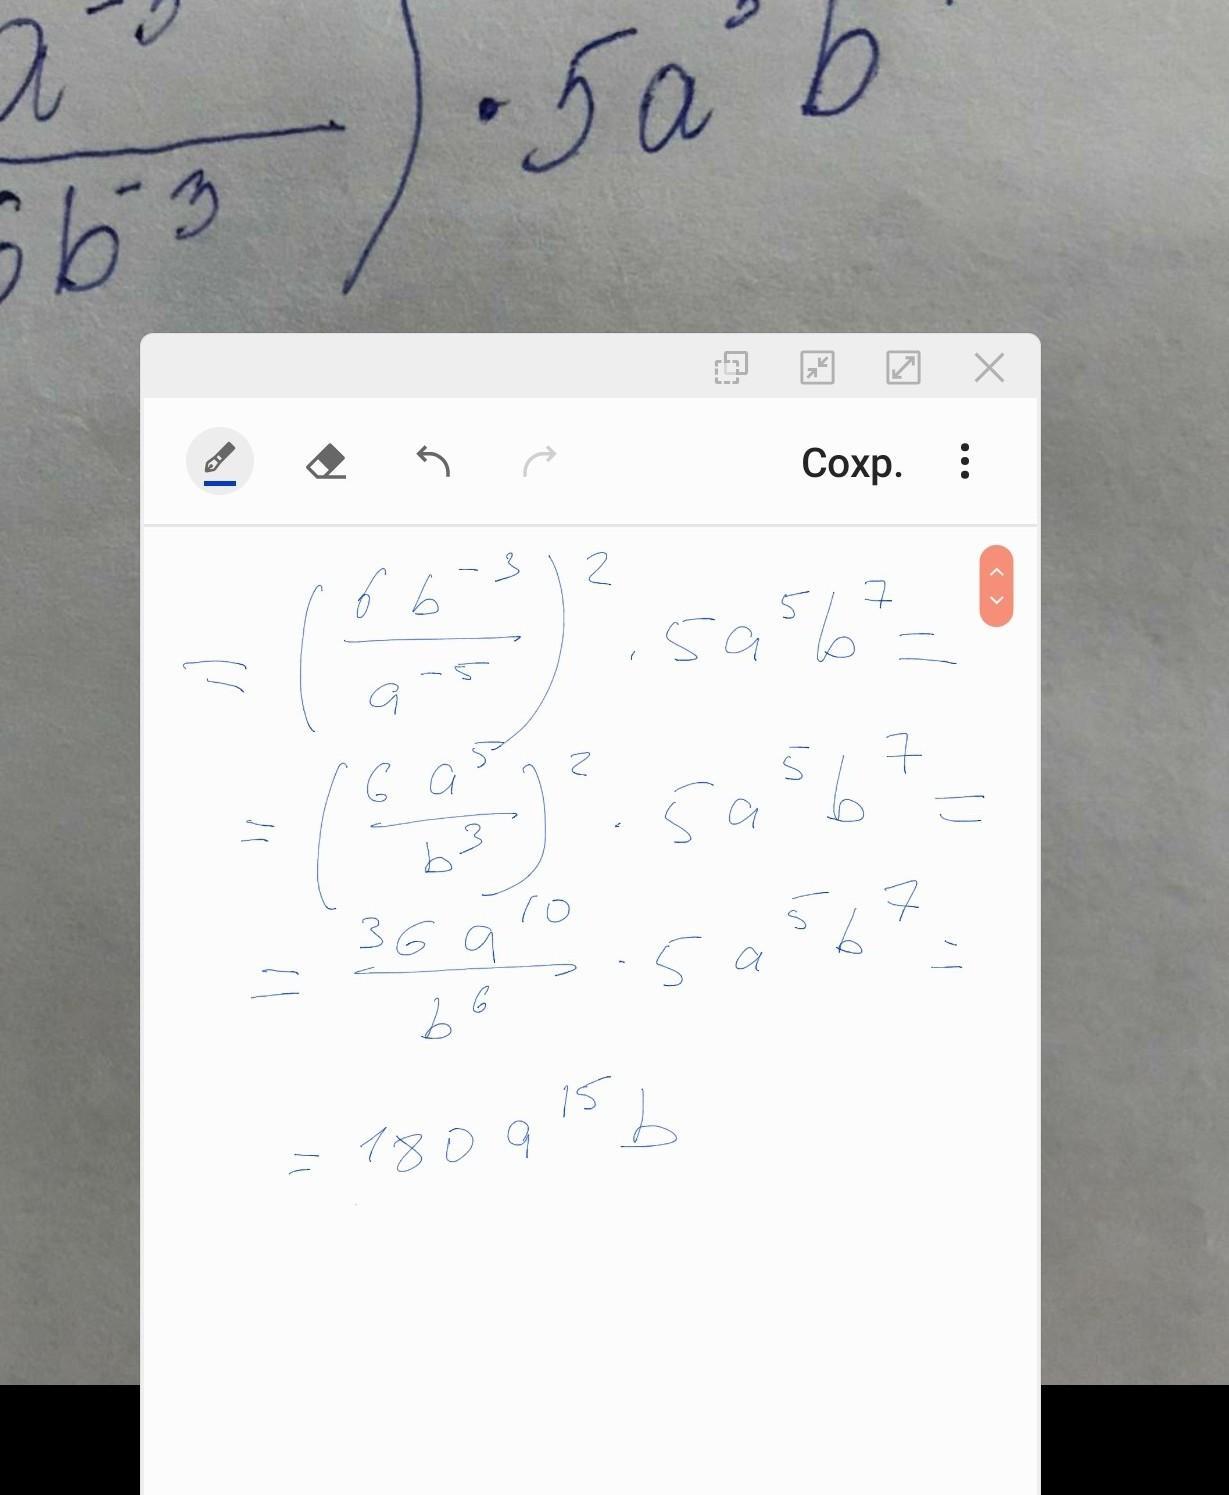 a⁻⁵
) · 5a⁵ b
6b⁻³
Сохр.
= (6b⁻³ / a⁻⁵)² · 5a⁵b⁷ =
= (6a⁵ / b³)² · 5a⁵b⁷ =
= 36a¹⁰ / b⁶ · 5a⁵b⁷ =
= 180a¹⁵b